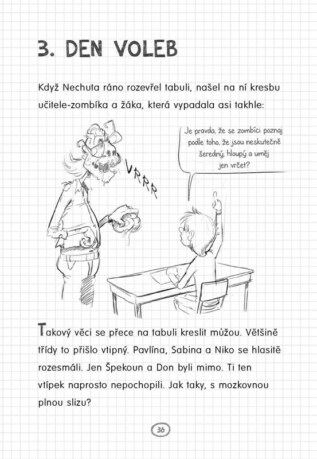 3. DEN VOLEB
Když Nechuta ráno rozevřel tabuli, našel na ní kresbu
učitele-zombíka a žáka, která vypadala asi takhle:
Je pravda, že se zombíci poznaj
podle toho, že jsou neskutečně
šeredný, hloupý a uměj
jen vrčet?
VRRR
Takový věci se přece na tabuli kreslit můžou. Většině
třídy to přišlo vtipný. Pavlína, Sabina a Niko se hlasitě
rozesmáli. Jen Špekoun a Don byli mimo. Ti ten
vtípek naprosto nepochopili. Jak taky, s mozkovnou
plnou slizu?
36